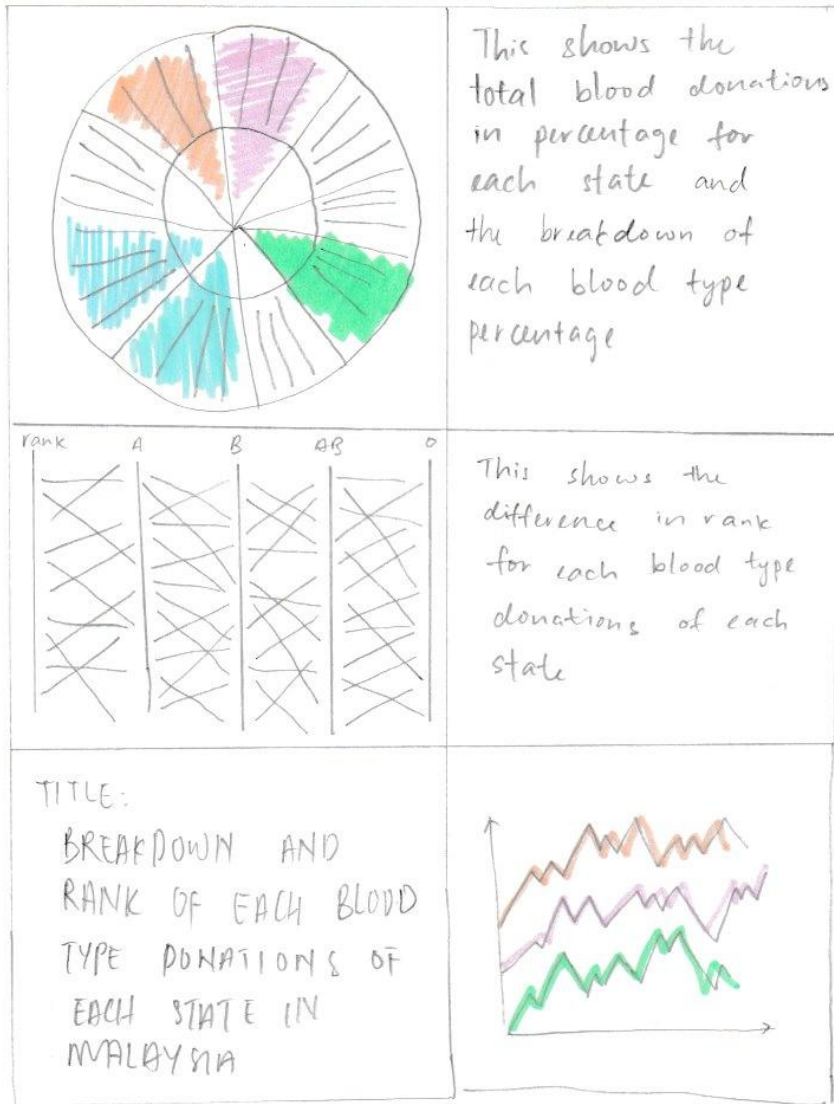 This shows the
total blood donations
in percentage for
each state and
the breakdown of
each blood type
percentage
rank A B AB O
This shows the
difference in rank
for each blood type
donations of each
state
TITLE:
BREAKDOWN AND
RANK OF EACH BLOOD
TYPE DONATIONS OF
EACH STATE IN
MALAYSIA